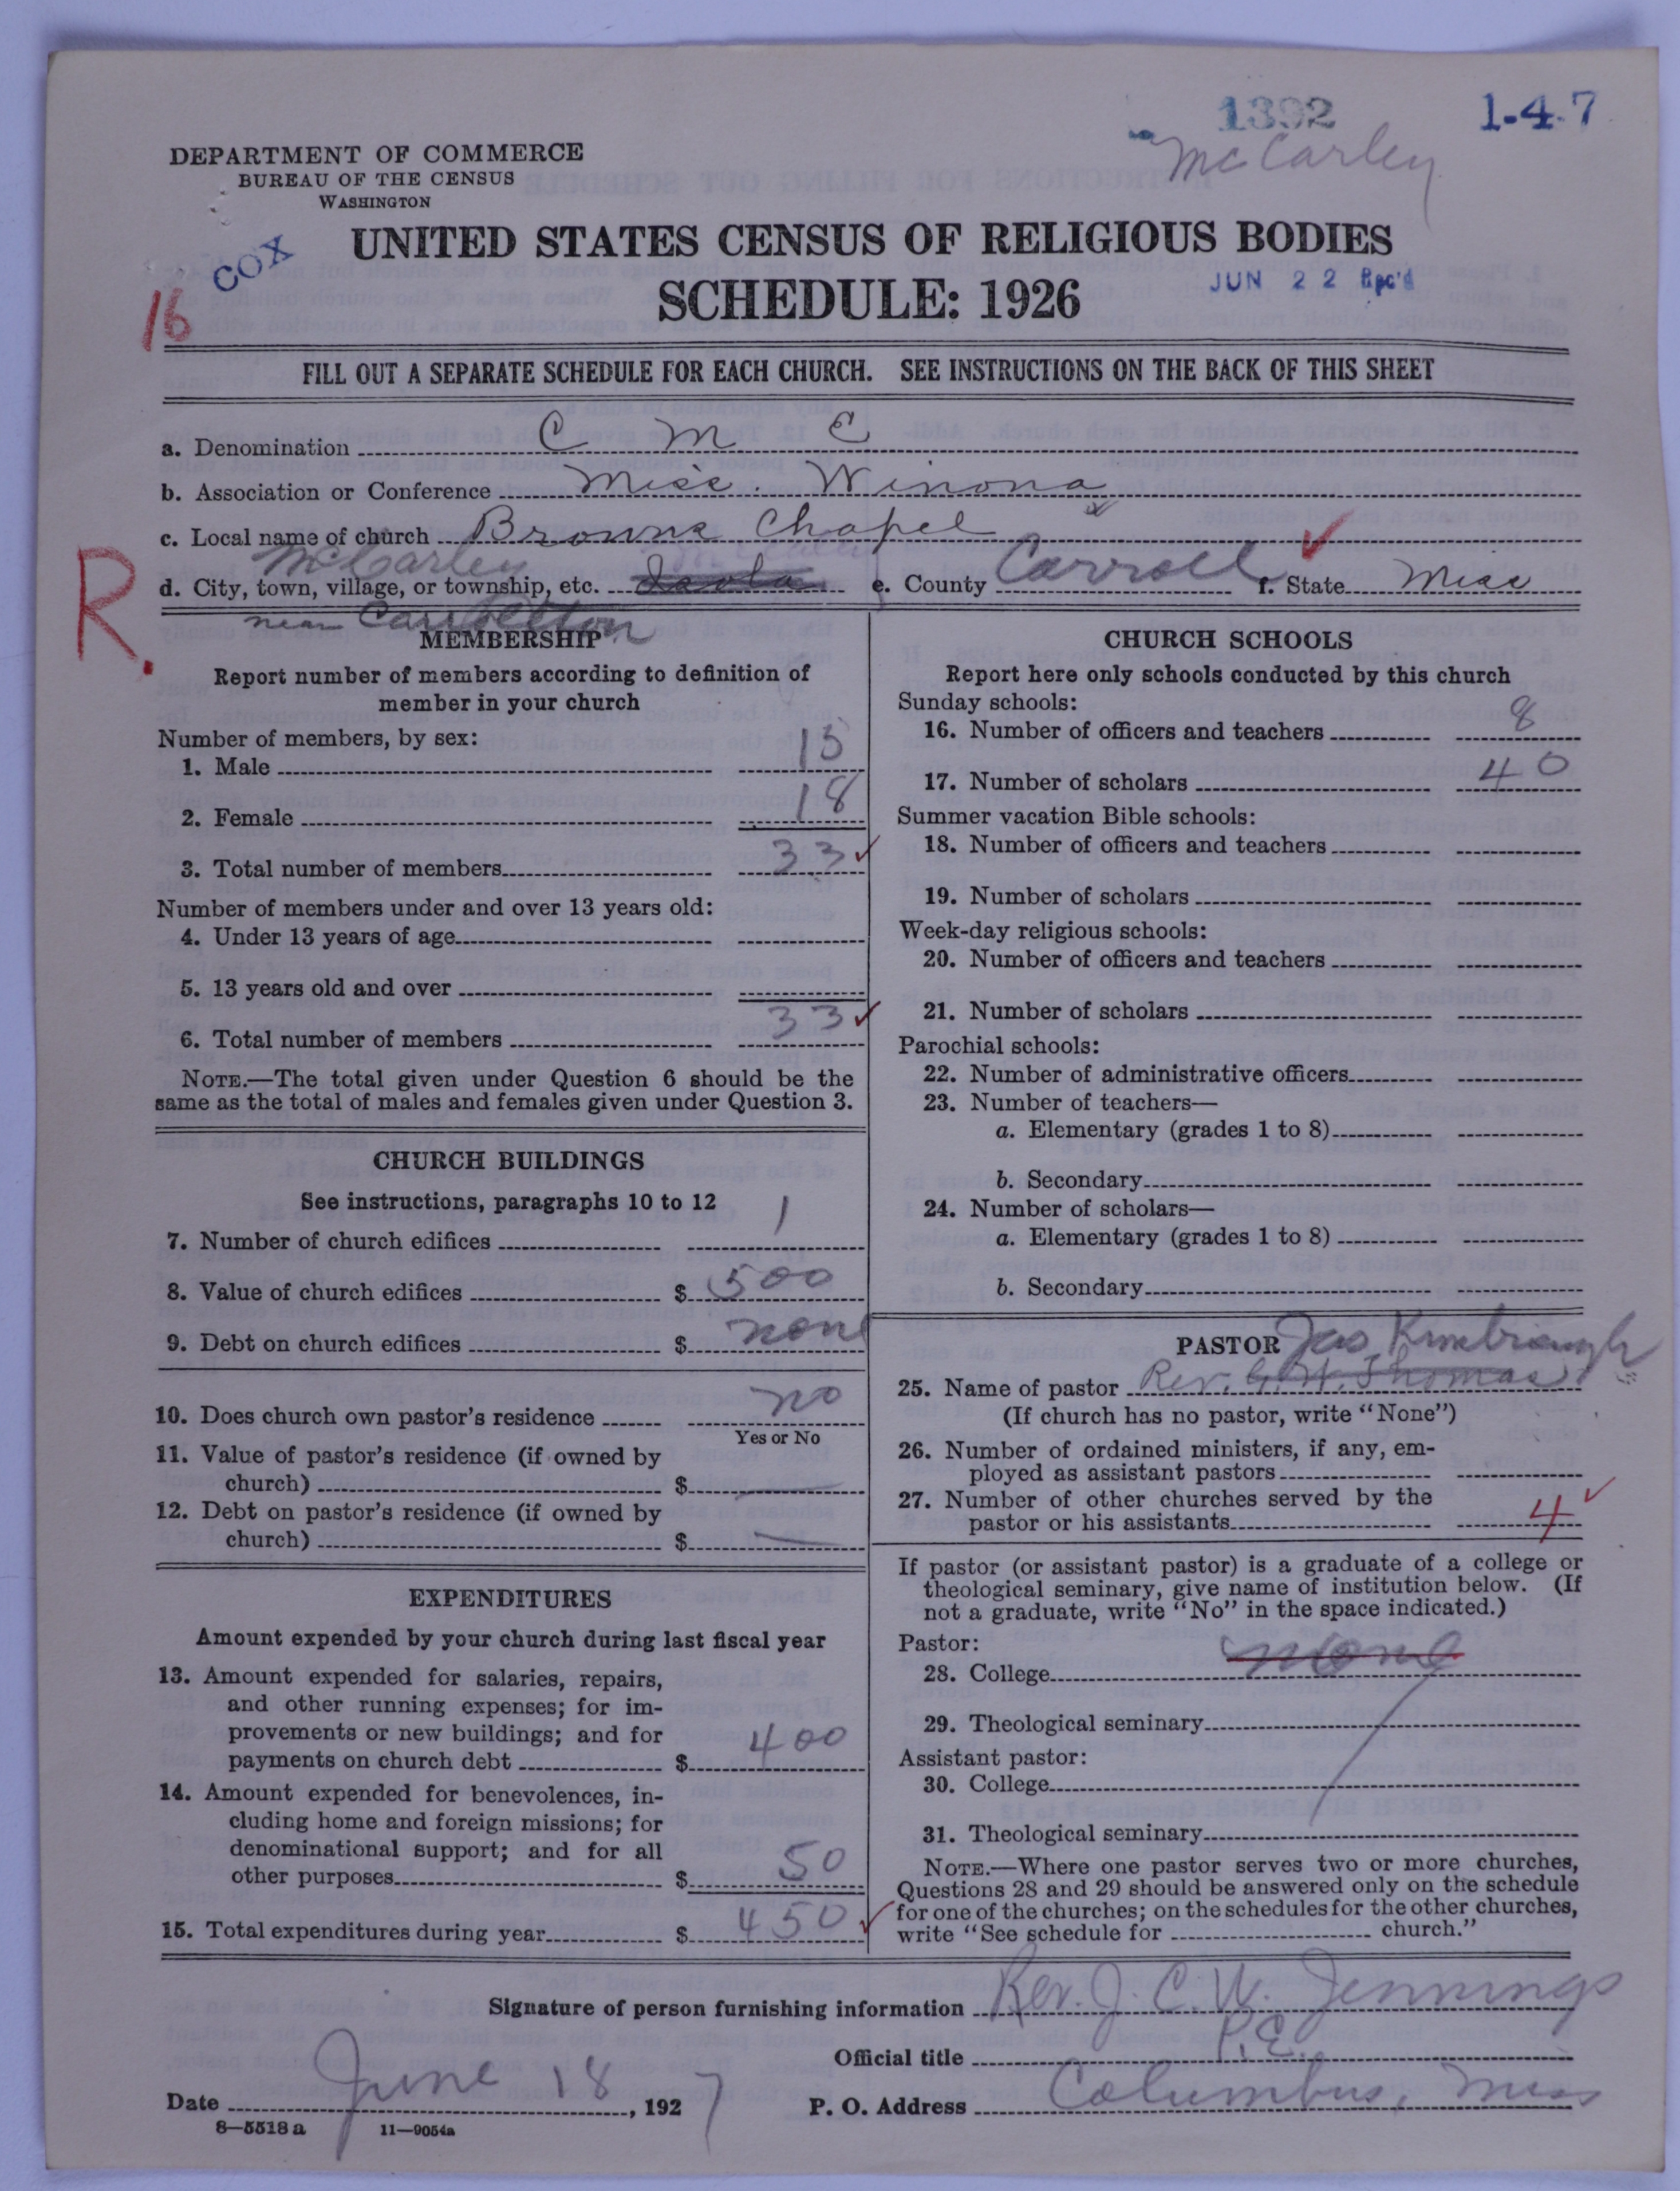 1392
1-4-7
McCarley
DEPARTMENT OF COMMERCE
BUREAU OF THE CENSUS
WASHINGTON
COX
UNITED STATES CENSUS OF RELIGIOUS BODIES
SCHEDULE: 1926
JUN 22 Rec'd
16
FILL OUT A SEPARATE SCHEDULE FOR EACH CHURCH. SEE INSTRUCTIONS ON THE BACK OF THIS SHEET
a. Denomination C M E
b. Association or Conference Miss. Winona
c. Local name of church Browns Chapel
McCarley
d. City, town, village, or township, etc. e. County Carroll f. State Miss
near Carrollton
R.
MEMBERSHIP
Report number of members according to definition of
member in your church
Number of members, by sex:
1. Male 15
2. Female 18
3. Total number of members 33
Number of members under and over 13 years old:
4. Under 13 years of age
5. 13 years old and over
6. Total number of members 33
NOTE.—The total given under Question 6 should be the
same as the total of males and females given under Question 3.
CHURCH BUILDINGS
See instructions, paragraphs 10 to 12
7. Number of church edifices 1
8. Value of church edifices $ 500
9. Debt on church edifices $ none
10. Does church own pastor's residence no
Yes or No
11. Value of pastor's residence (if owned by
church) $ —
12. Debt on pastor's residence (if owned by
church) $ —
EXPENDITURES
Amount expended by your church during last fiscal year
13. Amount expended for salaries, repairs,
and other running expenses; for im-
provements or new buildings; and for
payments on church debt $ 400
14. Amount expended for benevolences, in-
cluding home and foreign missions; for
denominational support; and for all
other purposes $ 50
15. Total expenditures during year $ 450
CHURCH SCHOOLS
Report here only schools conducted by this church
Sunday schools:
16. Number of officers and teachers 8
17. Number of scholars 40
Summer vacation Bible schools:
18. Number of officers and teachers
19. Number of scholars
Week-day religious schools:
20. Number of officers and teachers
21. Number of scholars
Parochial schools:
22. Number of administrative officers
23. Number of teachers—
a. Elementary (grades 1 to 8)
b. Secondary
24. Number of scholars—
a. Elementary (grades 1 to 8)
b. Secondary
PASTOR Jas Kimbrough
25. Name of pastor Rev. G. W. Thomas
(If church has no pastor, write "None")
26. Number of ordained ministers, if any, em-
ployed as assistant pastors
27. Number of other churches served by the
pastor or his assistants 4
If pastor (or assistant pastor) is a graduate of a college or
theological seminary, give name of institution below. (If
not a graduate, write "No" in the space indicated.)
Pastor:
28. College none
29. Theological seminary
Assistant pastor:
30. College
31. Theological seminary
NOTE.—Where one pastor serves two or more churches,
Questions 28 and 29 should be answered only on the schedule
for one of the churches; on the schedules for the other churches,
write "See schedule for church."
Signature of person furnishing information Rev. J. C. W. Jennings
Official title P.E.
Date June 18, 1927 P. O. Address Columbus, Miss
8—5518 a 11—9054a